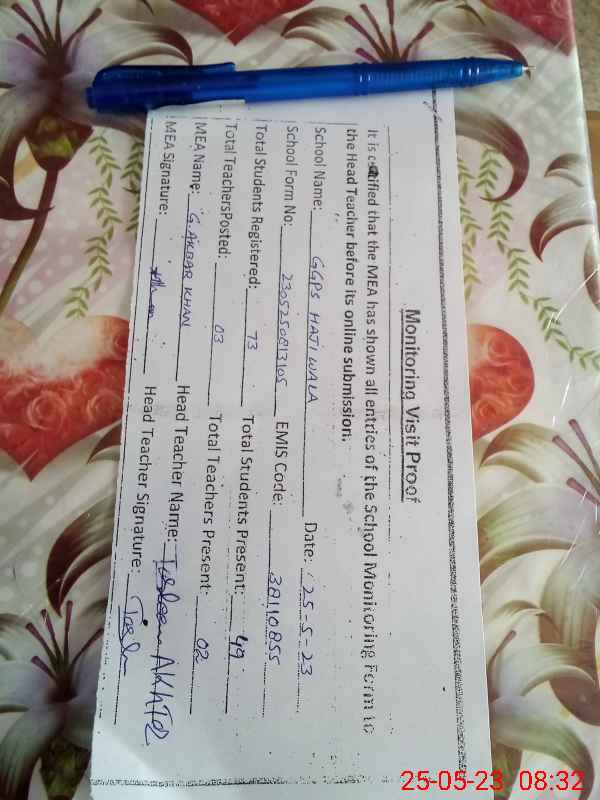 Monitoring Visit Proof
It is certified that the MEA has shown all entries of the School Monitoring Form to
the Head Teacher before its online submission.
School Name: GGPS HAJI WALA Date: 25-5-23
School Form No: 2305250813105 EMIS Code: 38110855
Total Students Registered: 73 Total Students Present: 49
Total TeachersPosted: 03 Total Teachers Present: 02
MEA Name: G. AKBAR KHAN Head Teacher Name: Tasleem AKHTER
MEA Signature: Head Teacher Signature:
25-05-23 08:32